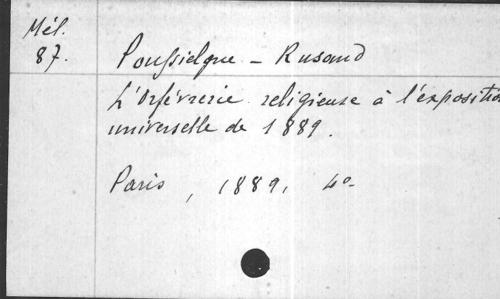 Mél.
87.
Poussielgue - Rusand
L'Orfévrerie religieuse à l'expositio
universelle de 1889.
Paris, 1889, 4°